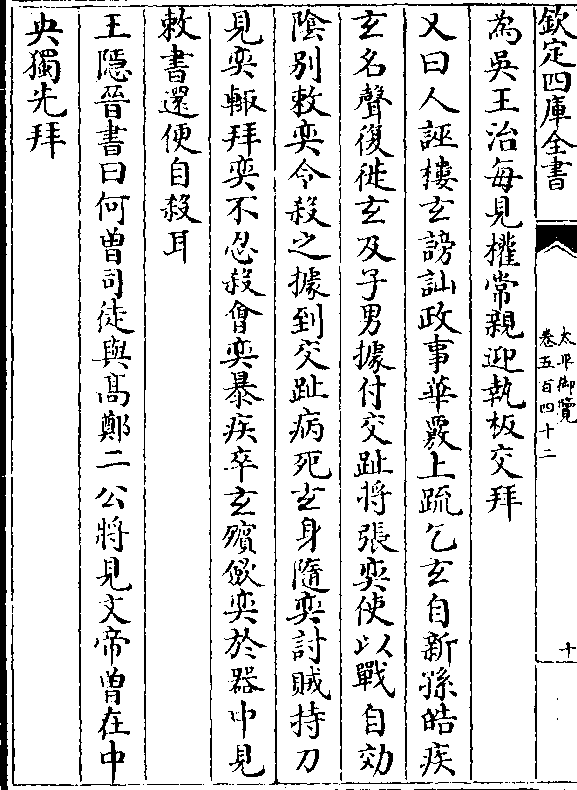 欽定四庫全書
太平御覽
卷五百四十二
十
為吳王治每見權常親迎執板交拜
又曰人誣樓玄謗訕政事華覈上疏乞玄自新孫皓疾
玄名聲復徙玄及子男據付交趾將張奕使以戰自効
陰别敕奕令殺之據到交趾病死玄身隨奕討賊持刀
見奕輙拜奕不忍殺會奕暴疾卒玄殯斂奕於器中見
敕書還便自殺耳
王隱晉書曰何曽司徒與髙鄭二公將見文帝曽在中
央獨先拜